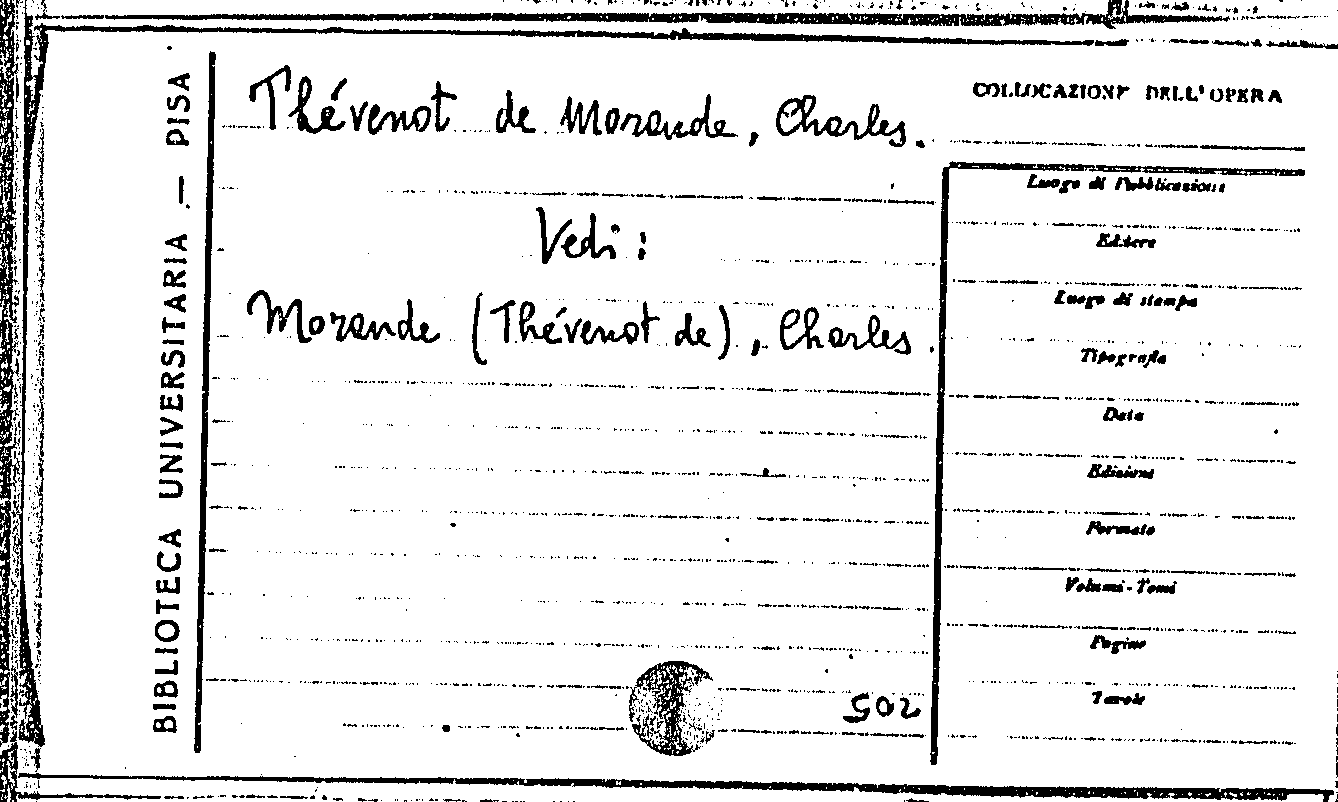 BIBLIOTECA UNIVERSITARIA — PISA
Thévenot de Morande, Charles.
Vedi:
Morande (Thévenot de), Charles.
502
COLLOCAZIONE DELL'OPERA
Luogo di Pubblicazione
Editore
Luogo di stampa
Tipografia
Data
Edizione
Formato
Volumi-Tomi
Pagine
Tavole